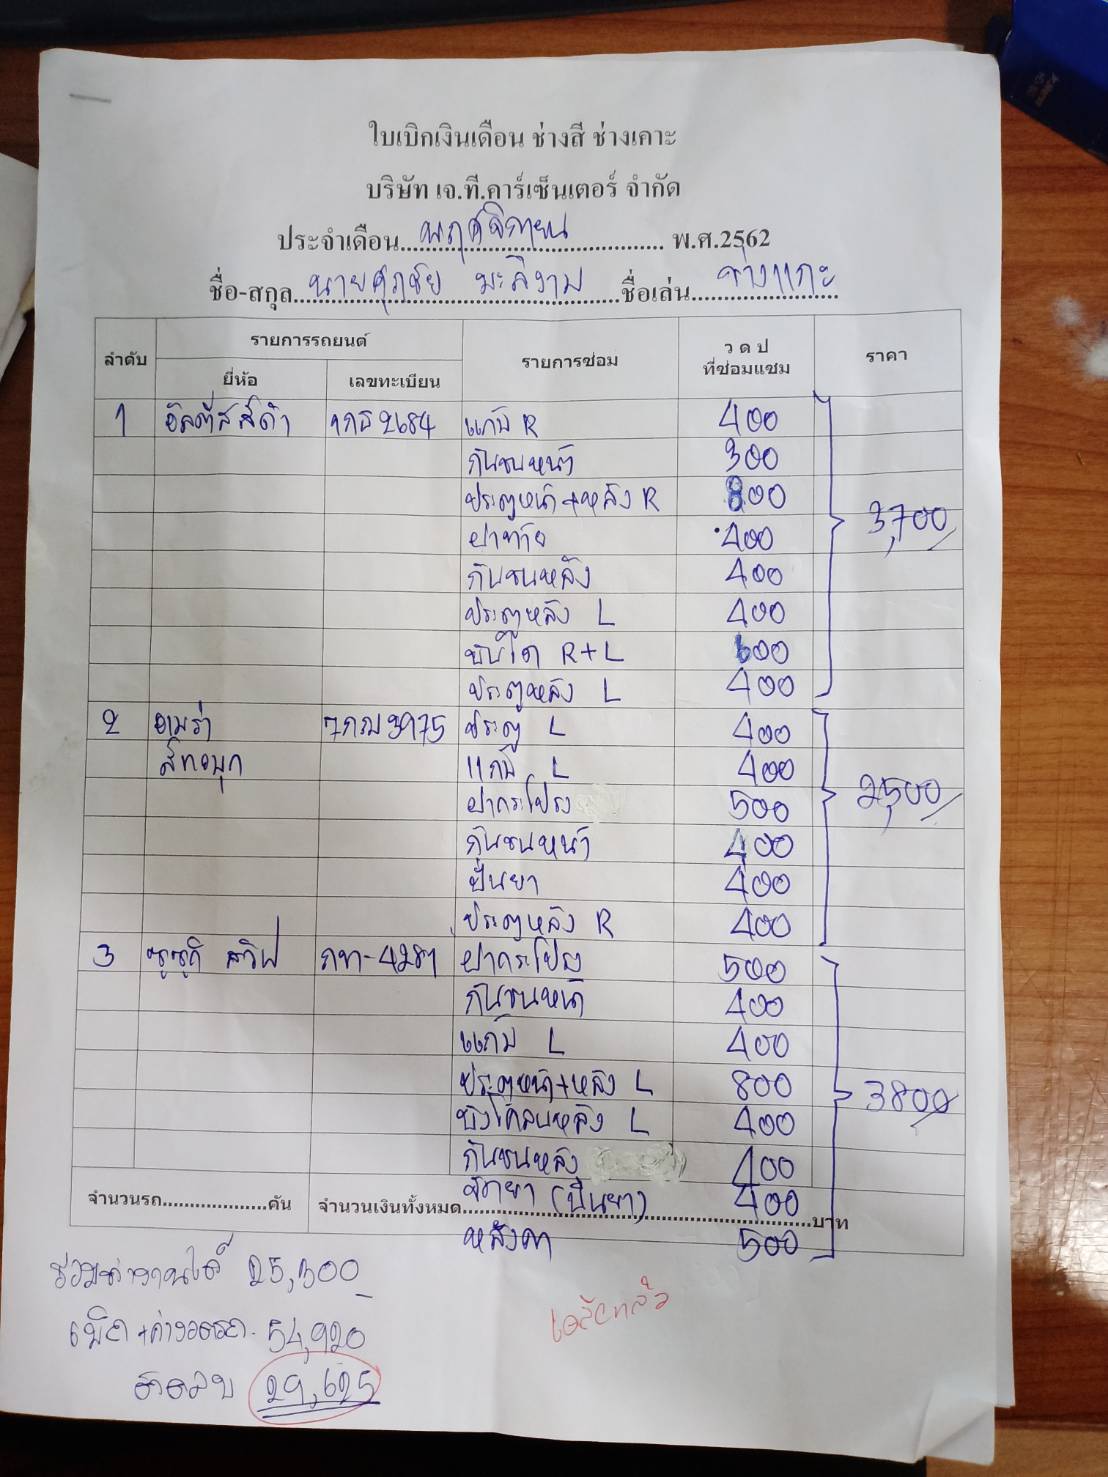 ใบเบิกเงินเดือน ช่างสี ช่างเคาะ
บริษัท เจ.ที.คาร์เซ็นเตอร์ จำกัด
ประจำเดือน พฤศจิกายน พ.ศ.2562
ชื่อ-สกุล นายศุภชัย มะลิงาม ชื่อเล่น ช่างแกะ
ลำดับ รายการรถยนต์ รายการซ่อม ว ด ป ที่ซ่อมแซม ราคา
ยี่ห้อ เลขทะเบียน
1 อัลติสสีดำ 2684 แก้ม R 400
กันชนหน้า 300
ประตูหน้า+หลัง R 800
ฝาท้าย 400 3,700
กันชนหลัง 400
ประตูหลัง L 400
บันได R+L 600
ประตูหลัง L 400
2 3975 ประตู L 400
แก้ม L 400
ฝากระโปรง 500 2,500
กันชนหน้า 400
ปั่นยา 400
ประตูหลัง R 400
3 ซูซูกิ สวิฟ กท-4281 ฝากระโปรง 500
กันชนหน้า 400
แก้ม L 400
ประตูหน้า+หลัง L 800 3800
บังโคลนหลัง L 400
กันชนหลัง 400
จำนวนรถ คัน จำนวนเงินทั้งหมด (ปั่นยา) 400 บาท
หลังคา 500
25,300
54,920
29,625